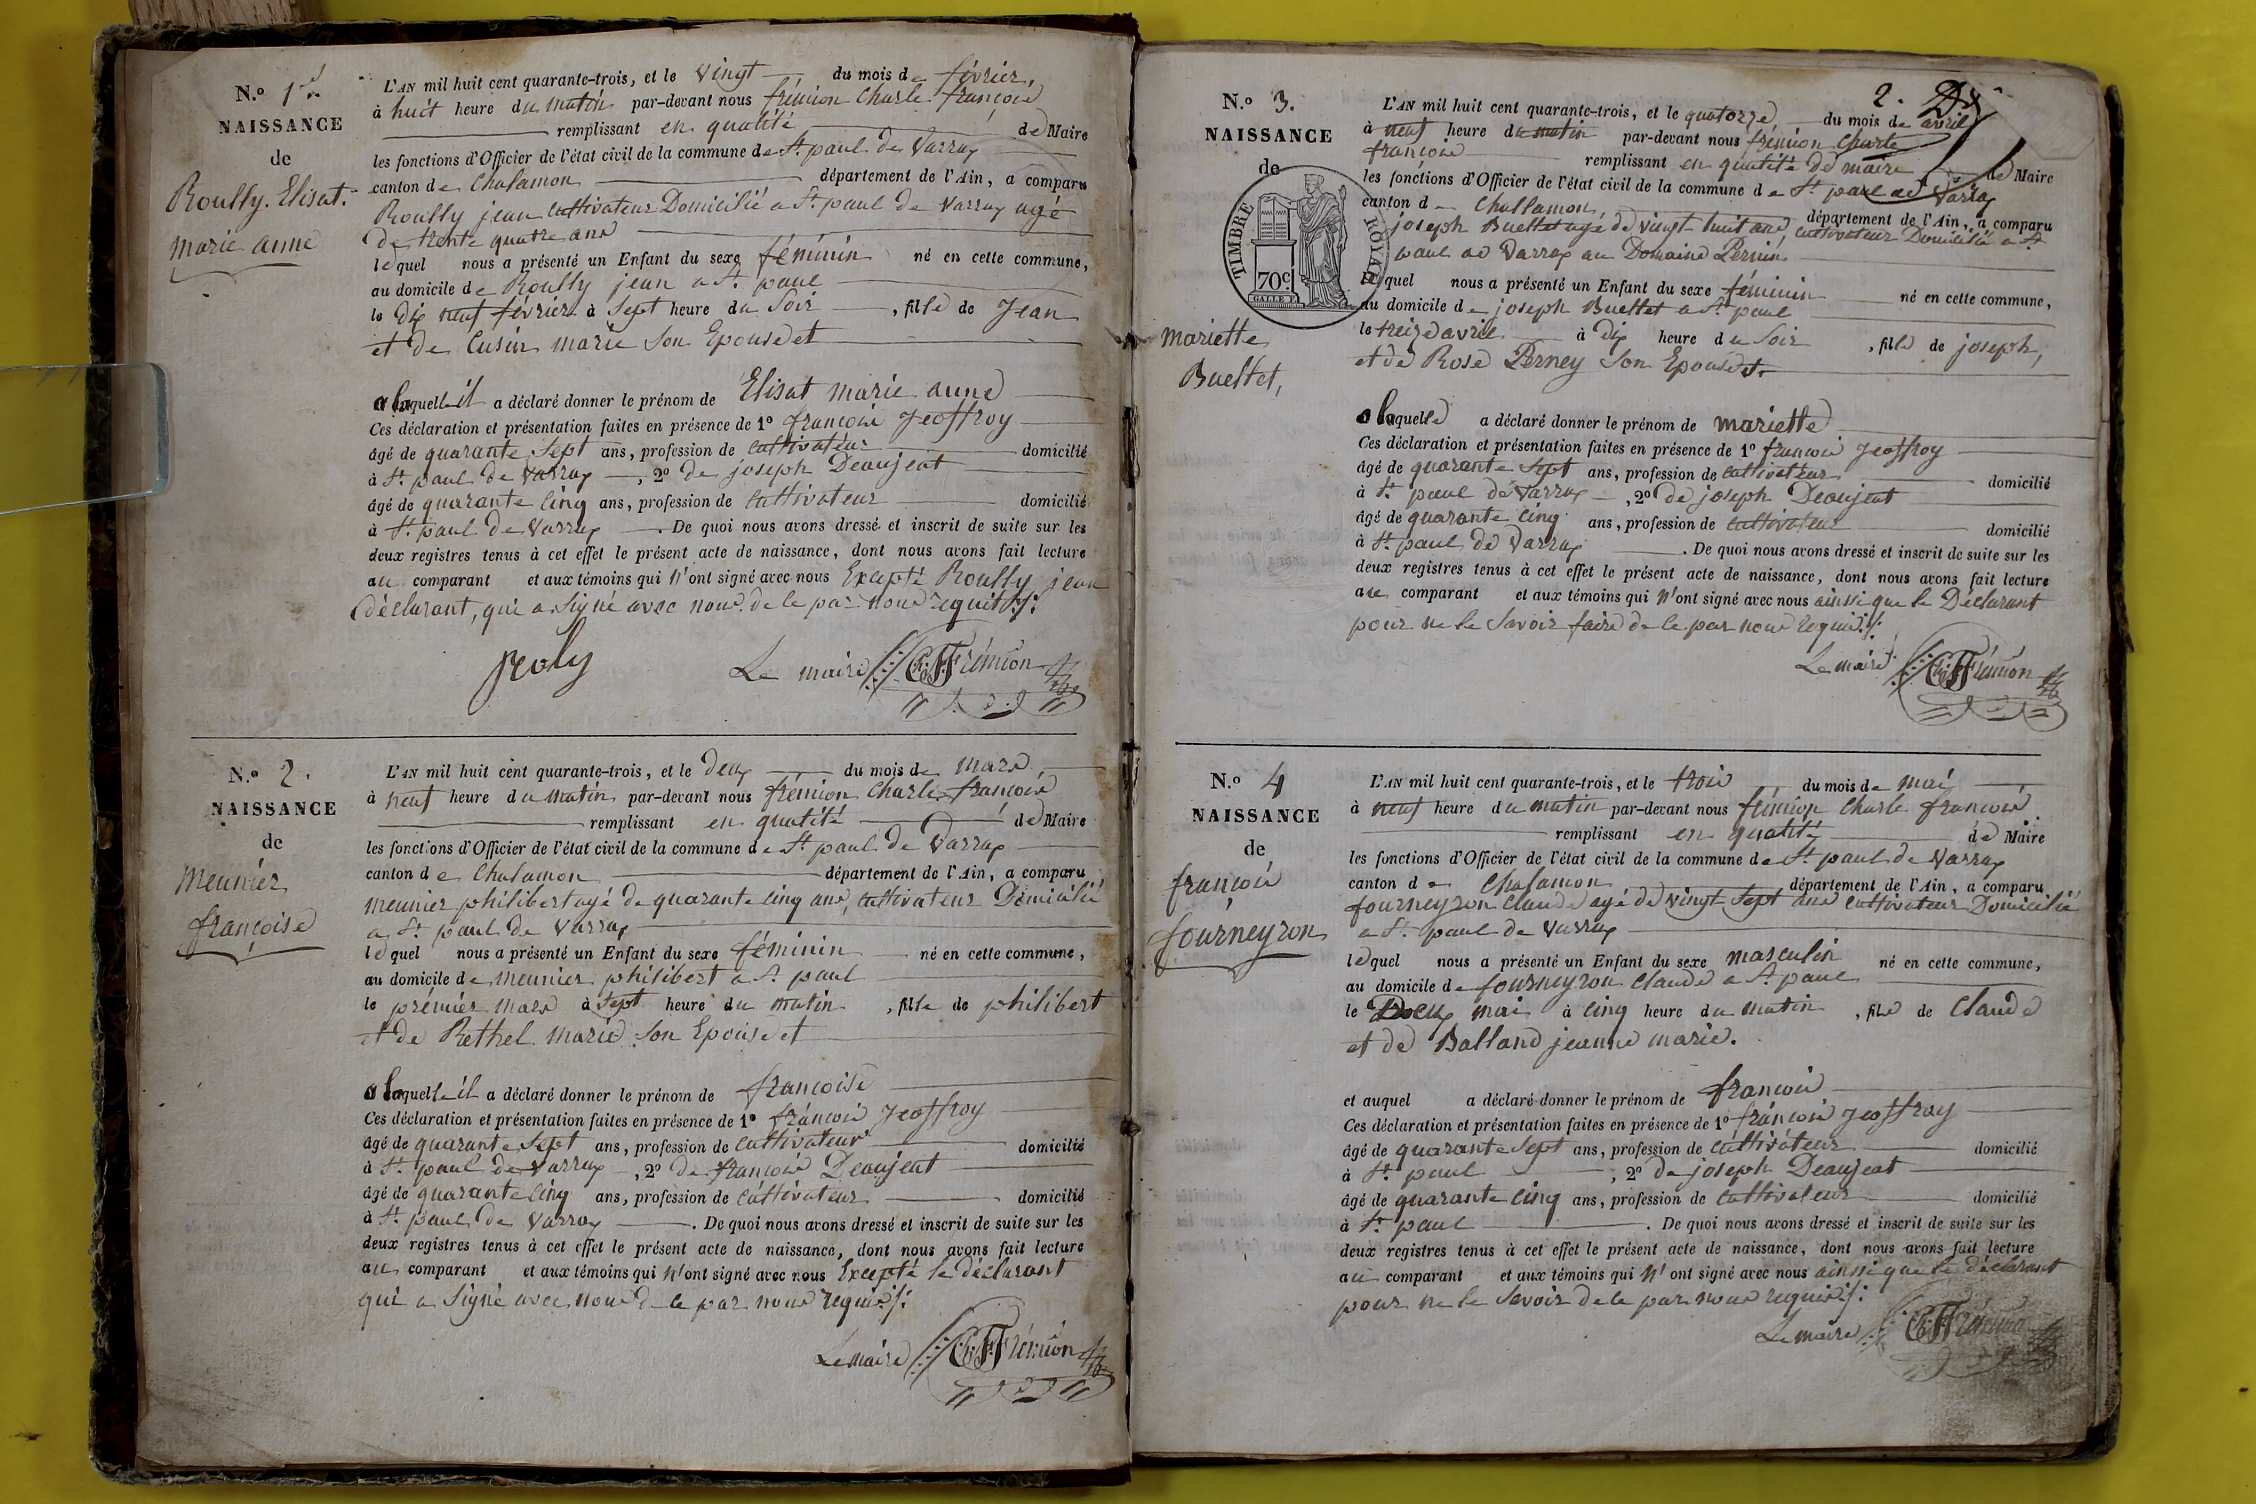 N.º 1er
NAISSANCE
de
Roully. Elisat.
marie anne
L'AN mil huit cent quarante-trois, et le vingt du mois de février,
à huit heure du matin par-devant nous frémion Charle françois
remplissant en qualité de Maire
les fonctions d'Officier de l'état civil de la commune de St paul de Varrax
canton de Chalamon département de l'Ain, a comparu
Roully jean cultivateur Domicilié a St paul de Varrax agé
de trente quatre ans
lequel nous a présenté un Enfant du sexe féminin né en cette commune,
au domicile de Roully jean a St. paul
le dix neuf février à Sept heure du Soir, fille de Jean
et de Cusin marie Son Epouse et
a laquelle il a déclaré donner le prénom de Elisat marie anne
Ces déclaration et présentation faites en présence de 1º françois Jeoffroy
âgé de quarante Sept ans, profession de cultivateur domicilié
à St. paul de Varrax, 2º de joseph Deaujeat
âgé de quarante cinq ans, profession de cultivateur domicilié
à St. paul de Varrax. De quoi nous avons dressé et inscrit de suite sur les
deux registres tenus à cet effet le présent acte de naissance, dont nous avons fait lecture
au comparant et aux témoins qui n'ont signé avec nous Excepté Roully jean
déclarant, qui a Signé avec nous de le par nous requit./.
roly
Le maire Ch. F. Frémion
N.º 2.
NAISSANCE
de
Meunier
françoise
L'AN mil huit cent quarante-trois, et le deux du mois de mars
à neuf heure du matin par-devant nous frémion Charle françois
remplissant en qualité de Maire
les fonctions d'Officier de l'état civil de la commune de St paul de Varrax
canton de Chalamon département de l'Ain, a comparu
meunier philibert agé de quarante cinq ans, cultivateur Domicilié
a St. paul de Varrax
lequel nous a présenté un Enfant du sexe féminin né en cette commune,
au domicile de meunier philibert a St paul
le prémier mars à Sept heure du matin, fille de philibert
et de Rethel marie Son Epouse et
a laquelle il a déclaré donner le prénom de françoise
Ces déclaration et présentation faites en présence de 1º françois Jeoffroy
âgé de quarante Sept ans, profession de cultivateur domicilié
à St. paul de Varrax, 2º de françois Deaujeat
âgé de quarante cinq ans, profession de cultivateur domicilié
à St. paul de Varrax. De quoi nous avons dressé et inscrit de suite sur les
deux registres tenus à cet effet le présent acte de naissance, dont nous avons fait lecture
au comparant et aux témoins qui n'ont signé avec nous Excepté le déclarant
qui a Signé avec nous de le par nous requis./.
Le maire Ch. F. Frémion
2.
N.º 3.
NAISSANCE
de
TIMBRE ROYAL
70c
mariette
Buellet,
L'AN mil huit cent quarante-trois, et le quatorze du mois de avril
à neuf heure du matin par-devant nous frémion Charle
françois remplissant en qualité de maire de Maire
les fonctions d'Officier de l'état civil de la commune de St paul de Varrax
canton de Challamon, département de l'Ain, a comparu
joseph Buellet agé de vingt huit ans, cultivateur Domicilié a St
paul de Varrax au Domaine Pernin
lequel nous a présenté un Enfant du sexe féminin né en cette commune,
au domicile de joseph Buellet a St paul
le treize avril à dix heure du Soir, fille de joseph,
et de Rose Perney Son Epouse et
a laquelle a déclaré donner le prénom de mariette
Ces déclaration et présentation faites en présence de 1º françois Jeoffroy
âgé de quarante Sept ans, profession de cultivateur domicilié
à St. paul de Varrax, 2º de joseph Deaujeat
âgé de quarante cinq ans, profession de cultivateur domicilié
à St. paul de Varrax. De quoi nous avons dressé et inscrit de suite sur les
deux registres tenus à cet effet le présent acte de naissance, dont nous avons fait lecture
au comparant et aux témoins qui n'ont signé avec nous ainssi que le Déclarant
pour ne le Savoir faire de le par nous requis./.
Le maire Ch. F. Frémion
N.º 4
NAISSANCE
de
françois
fourneyron
L'AN mil huit cent quarante-trois, et le trois du mois de mai
à neuf heure du matin par-devant nous frémion Charle françois
remplissant en qualité de Maire
les fonctions d'Officier de l'état civil de la commune de St paul de Varrax
canton de Chalamon département de l'Ain, a comparu
fourneyron Claude agé de vingt Sept ans cultivateur Domicilié
a St. paul de Varrax
lequel nous a présenté un Enfant du sexe masculin né en cette commune,
au domicile de fourneyron Claude a St paul
le Deux mai à cinq heure du matin, fils de Claude
et de Balland jeanne marie.
et auquel a déclaré donner le prénom de françois
Ces déclaration et présentation faites en présence de 1º françois Jeoffroy
âgé de quarante Sept ans, profession de cultivateur domicilié
à St. paul, 2º de joseph Deaujeat
âgé de quarante cinq ans, profession de cultivateur domicilié
à St. paul. De quoi nous avons dressé et inscrit de suite sur les
deux registres tenus à cet effet le présent acte de naissance, dont nous avons fait lecture
au comparant et aux témoins qui n'ont signé avec nous ainssi que le déclarant
pour ne le Savoir de le par nous requis./.
Le maire Ch. F. Frémion